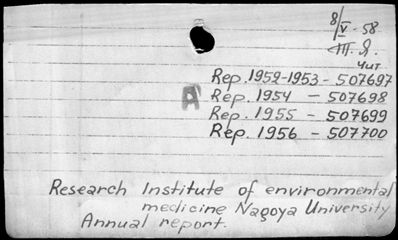 8/V-58
Чит
Rep. 1952-1953-507697
A Rep. 1954 - 507698
Rep. 1955 - 507699
Rep. 1956 - 507700
Research Institute of environmental
medicine Nagoya University
Annual report.